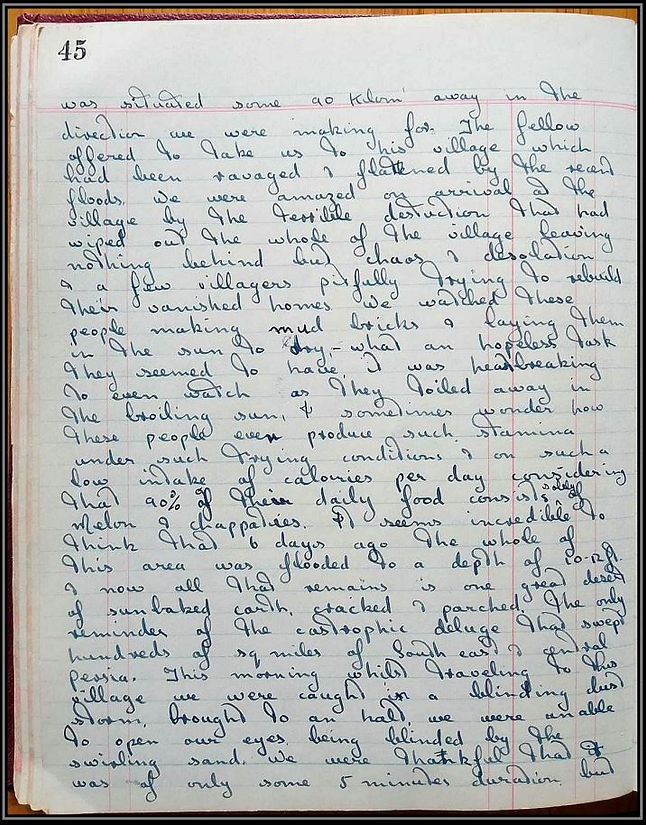 45
was situated some 90 Kilom' away in the
direction we were making for. The fellow
offered to take us to his village which
had been ravaged & flattened by the recent
floods. We were amazed on arrival at the
village by the terrible destuction that had
wiped out the whole of the village leaving
nothing behind but chaos & desolation
& a few villagers pitifully trying to rebuild
their vanished homes. We watched these
people making mud bricks & laying them
in the sun to dry,- what an hopeless task
they seemed to have, I was heartbreaking
to even watch as they toiled away in
the broiling sun, I sometimes wonder how
these people even produce such stamina
under such trying conditions & on such a
low intake of calouries per day considering
that 90% of their daily food consists solely of
melon & chappaties. It seems incredible to
think that 6 days ago the whole of
this area was flooded to a depth of 10-12ft.
& now all that remains is one great desert
of sunbaked earth, cracked & parched. The only
reminder of the castrophic deluge that swept
hundreds of sq miles of South east & central
Persia. This morning whilst traveling to this
village we were caught in a blinding dust
storm, brought to an halt, we were unable
to open our eyes, being blinded by the
swirling sand. We were thankful that it
was of only some 5 minutes duration. but